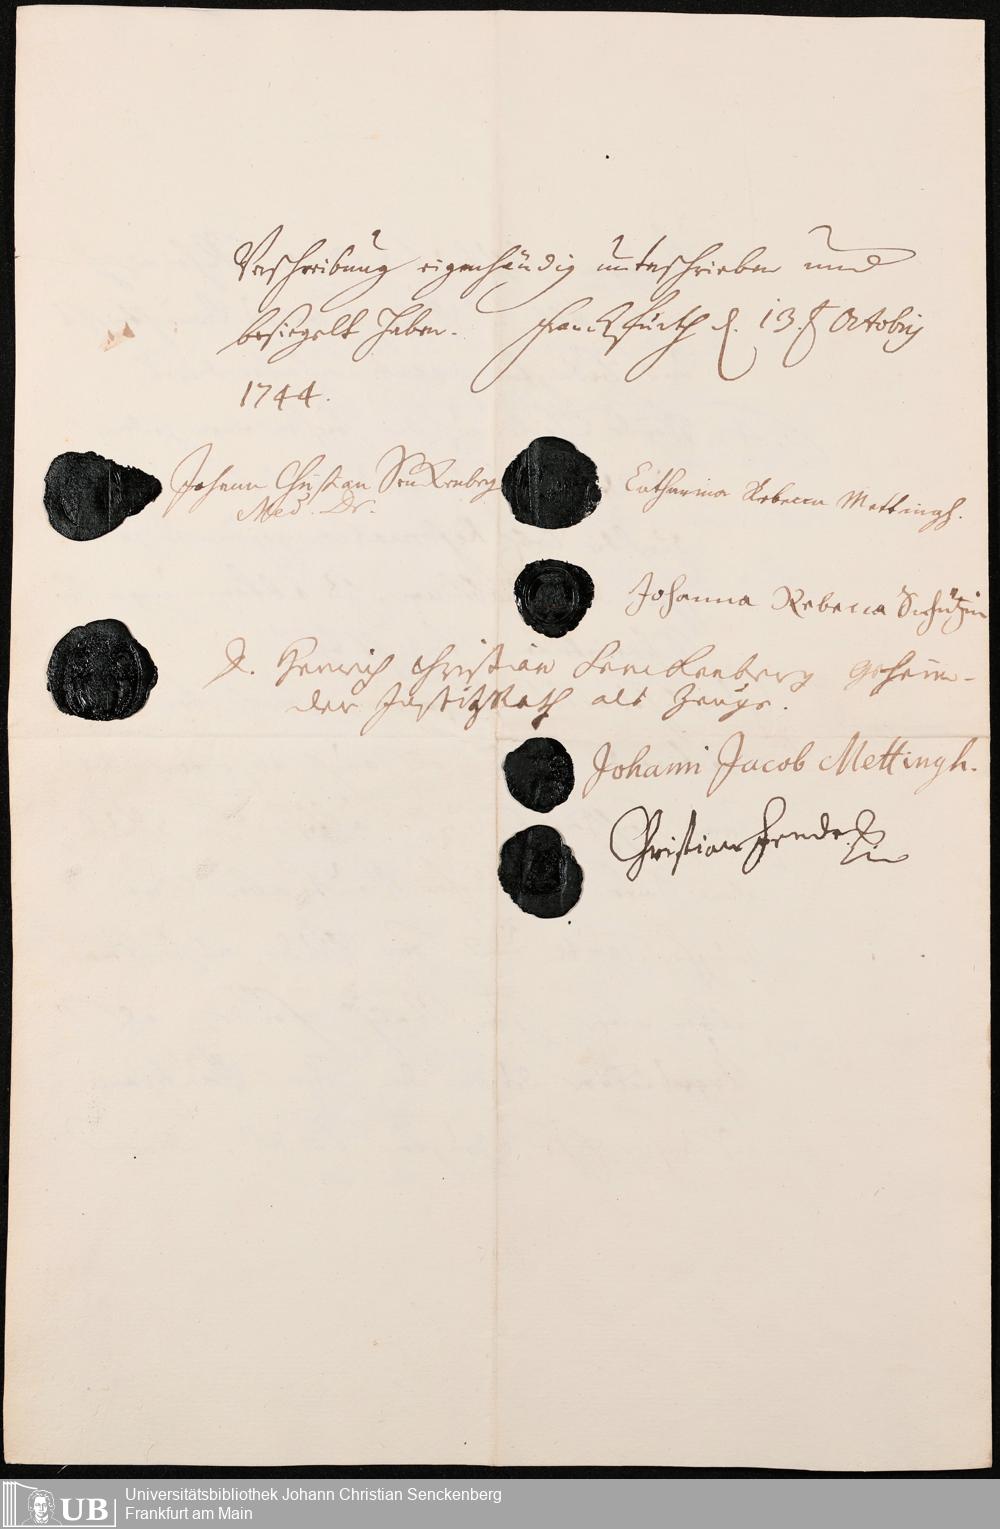 Verschreibung eigenhändig unterschrieben und
besiegelt haben. Franckfurth d. 13. Octobris
1744.
Johann Christian Senckenberg
Med. Dr.
Catharina Rebecca Mettingh.
Johanna Rebecca
D. Henrich Christian Senckenberg geheim-
der JustitzRath als Zeuge.
Johann Jacob Mettingh.
Christian
UB
Universitätsbibliothek Johann Christian Senckenberg
Frankfurt am Main